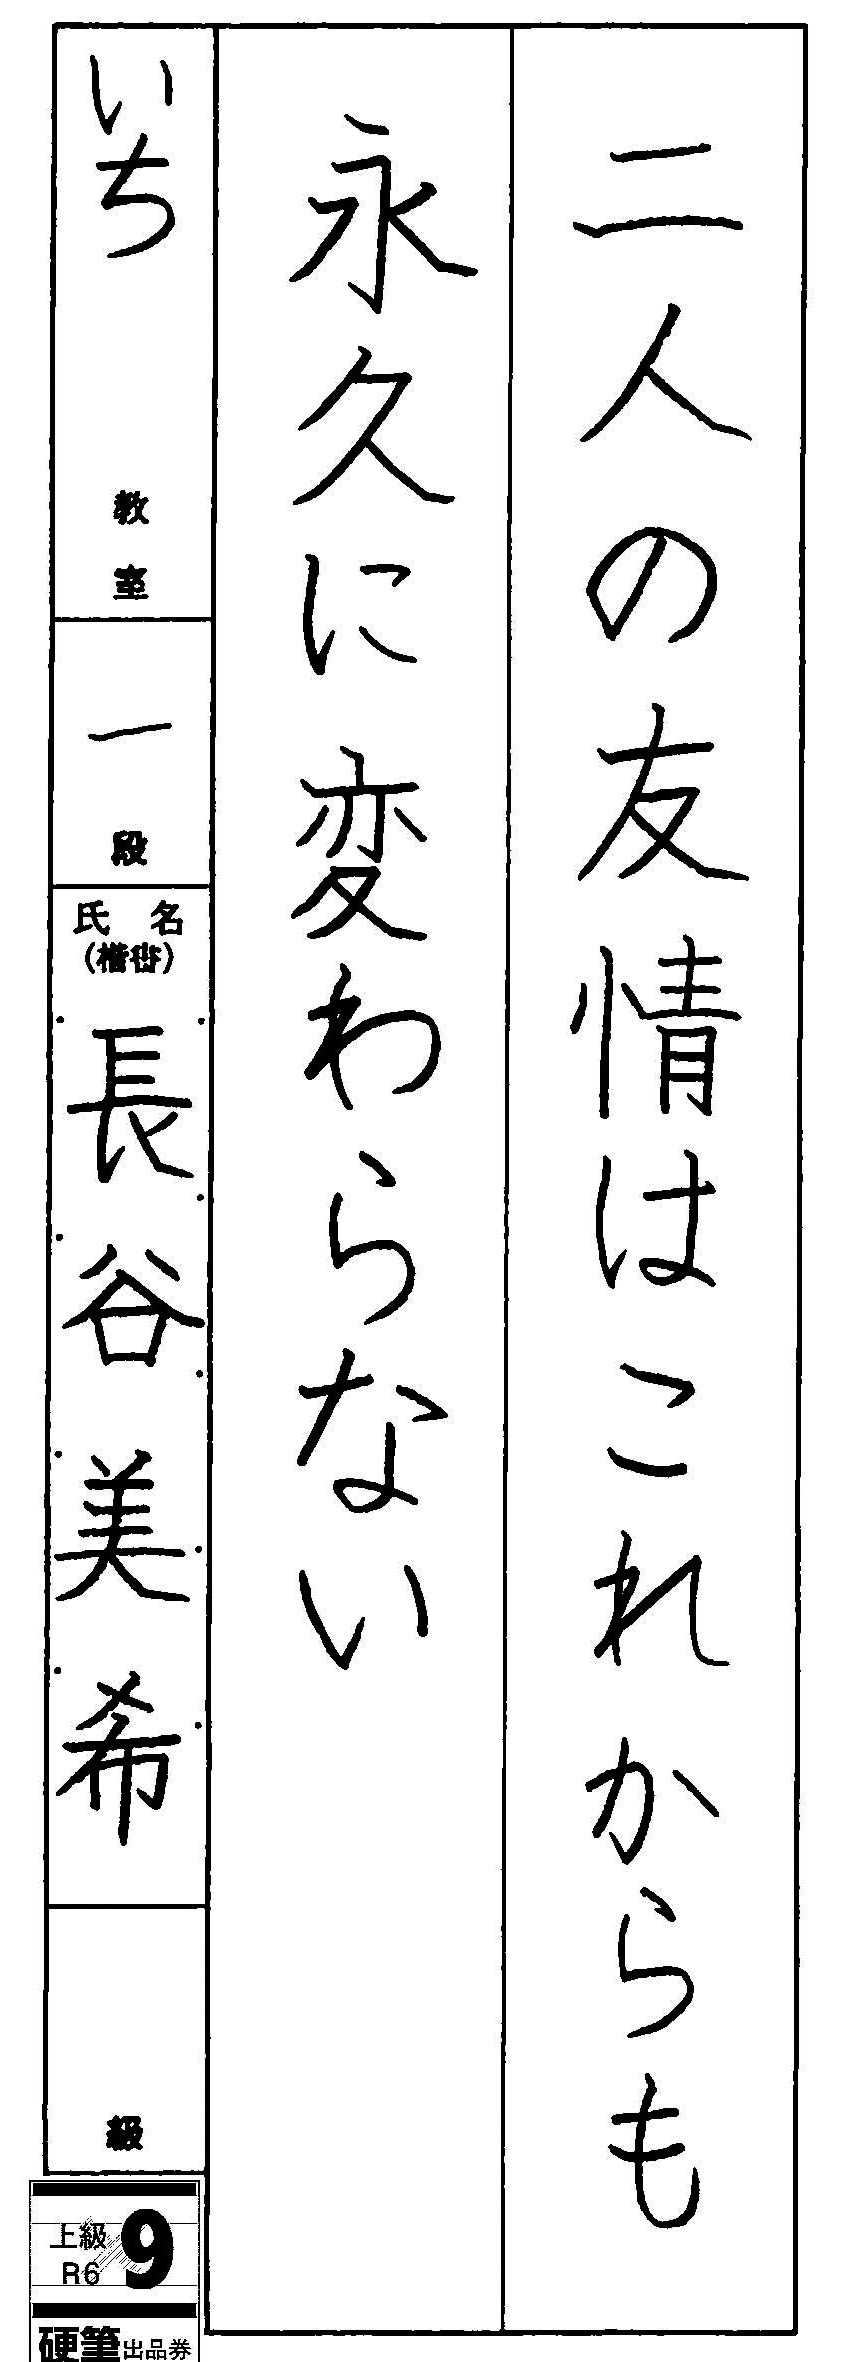 二人の友情はこれからも
永久に変わらない
いち 教室
一 段
氏名
(楷書)
長谷美希
級
上級 9
R6
硬筆出品券